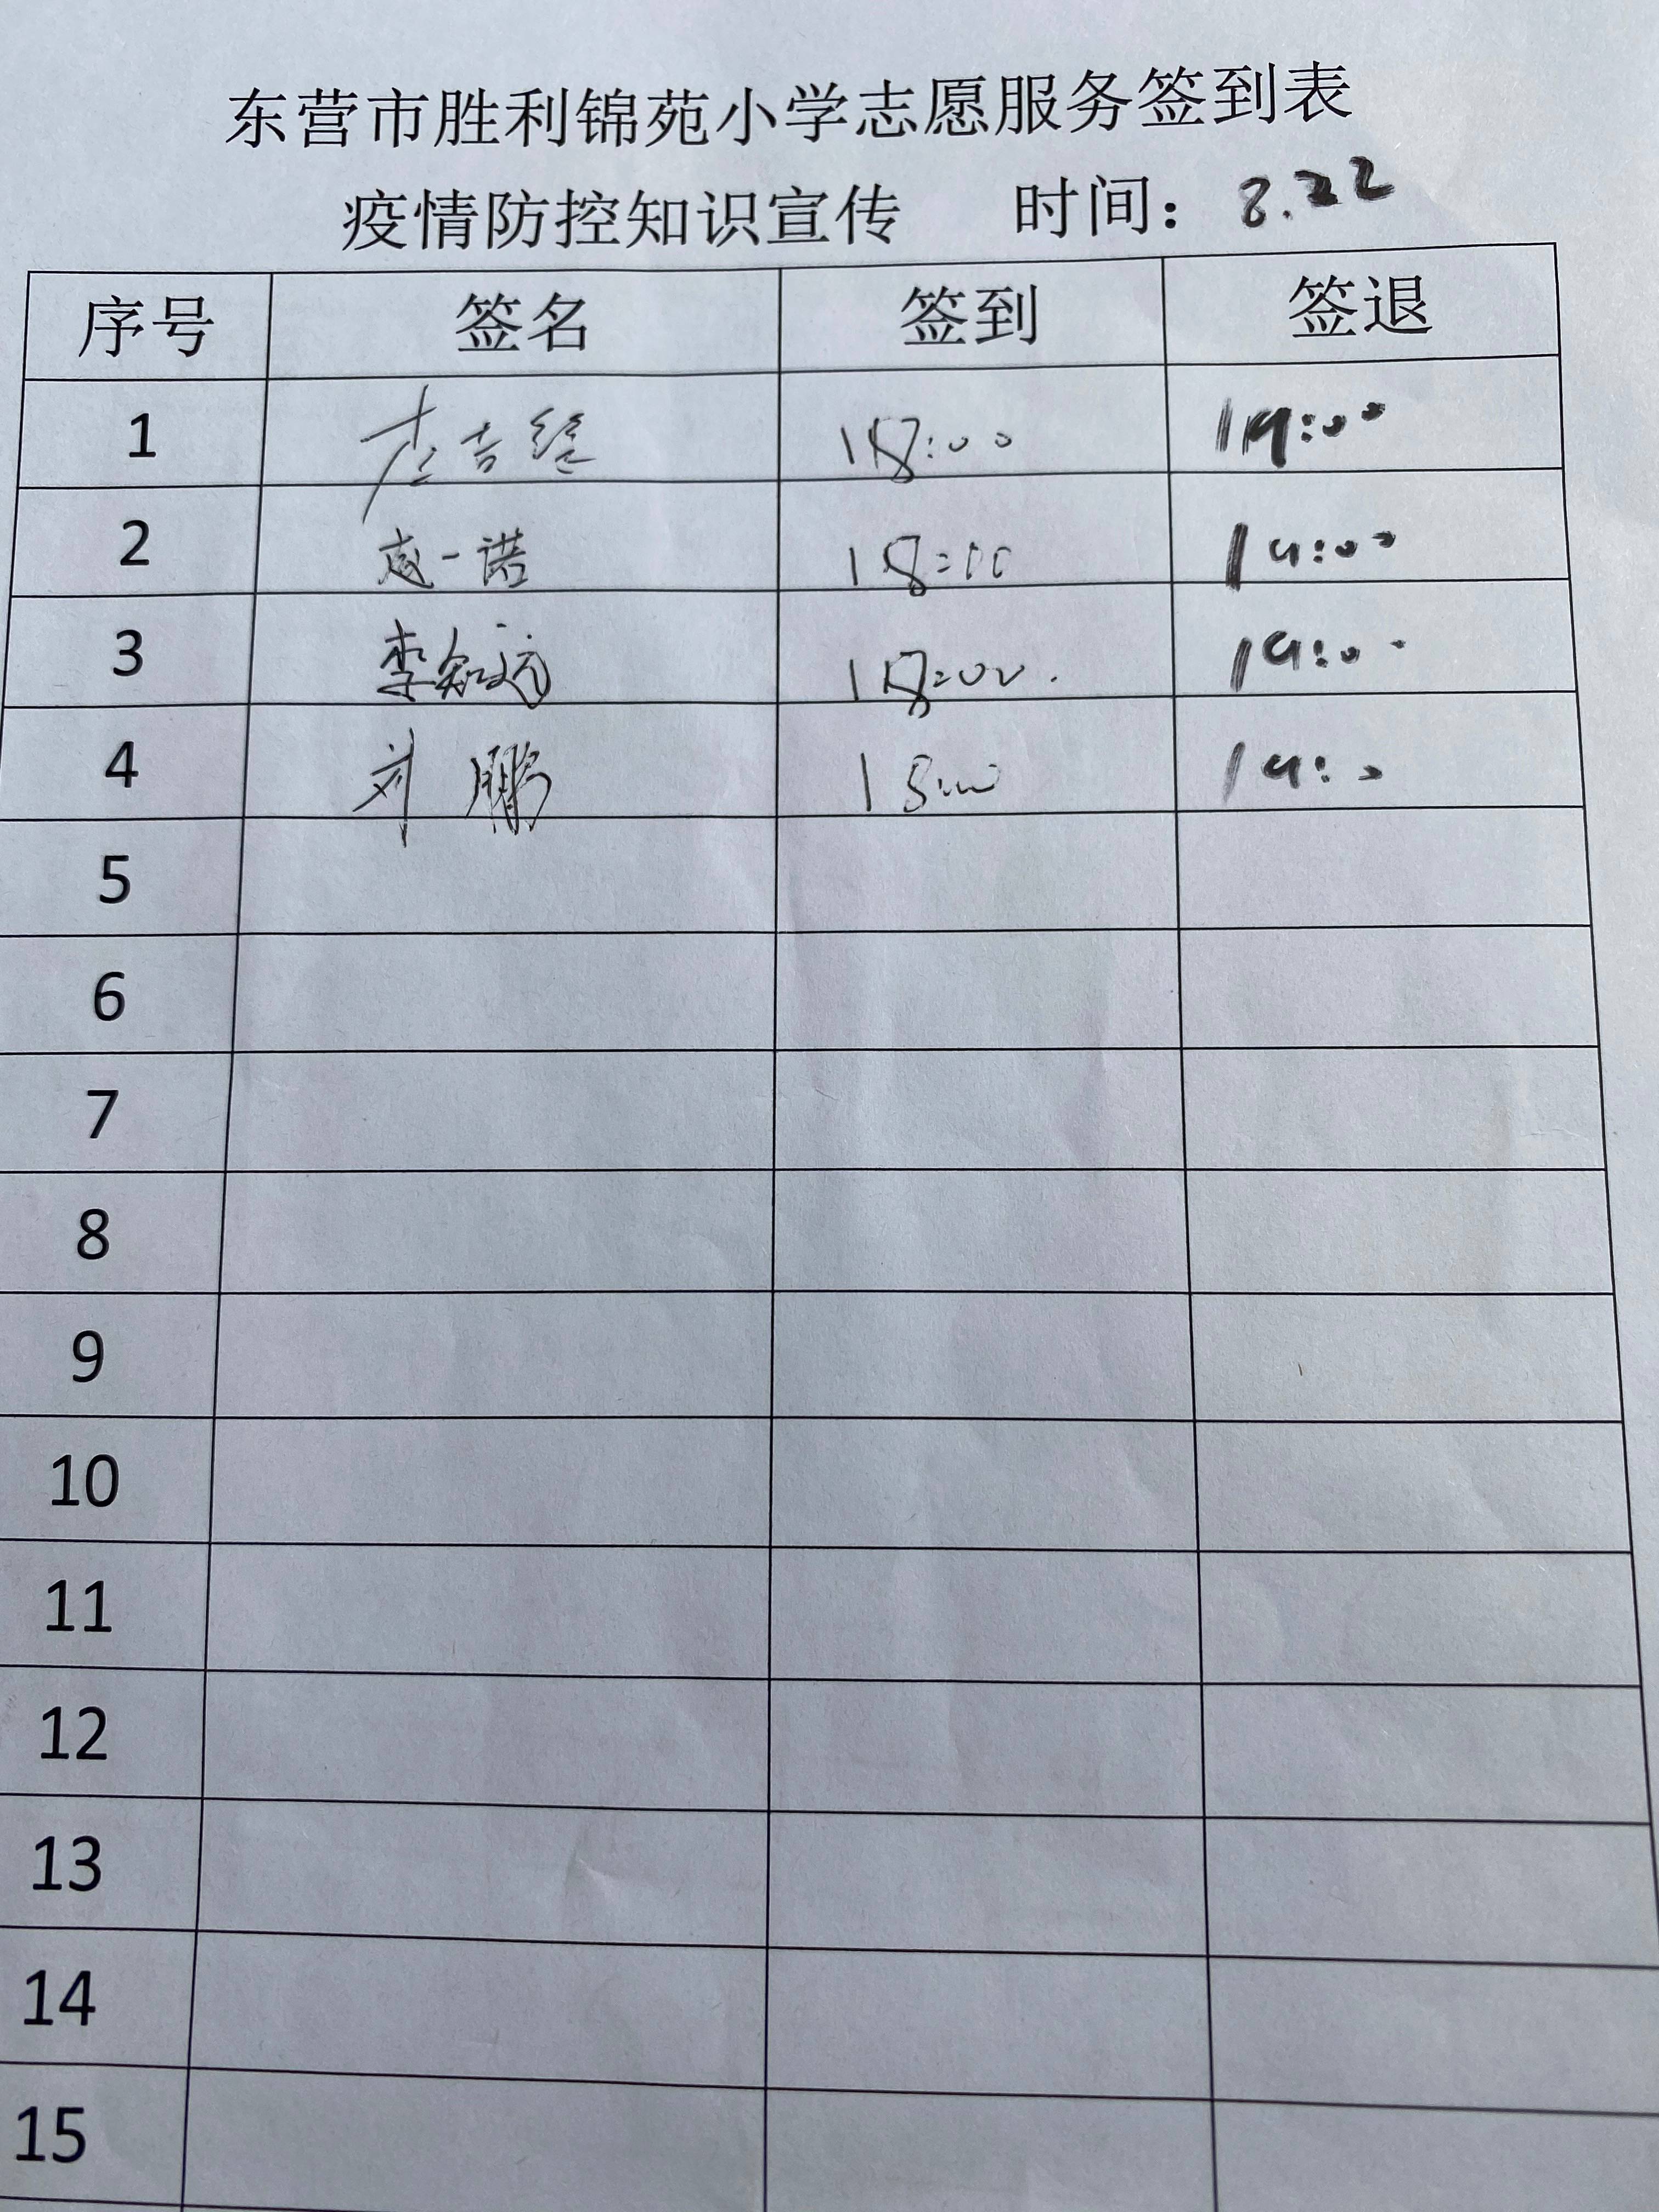 东营市胜利锦苑小学志愿服务签到表
疫情防控知识宣传 时间：8.22
序号 签名 签到 签退
1 18:00 19:00
2 一诺 18:00 19:00
3 李知远 18:00 19:00
4 刘鹏 18:00 19:0
5
6
7
8
9
10
11
12
13
14
15